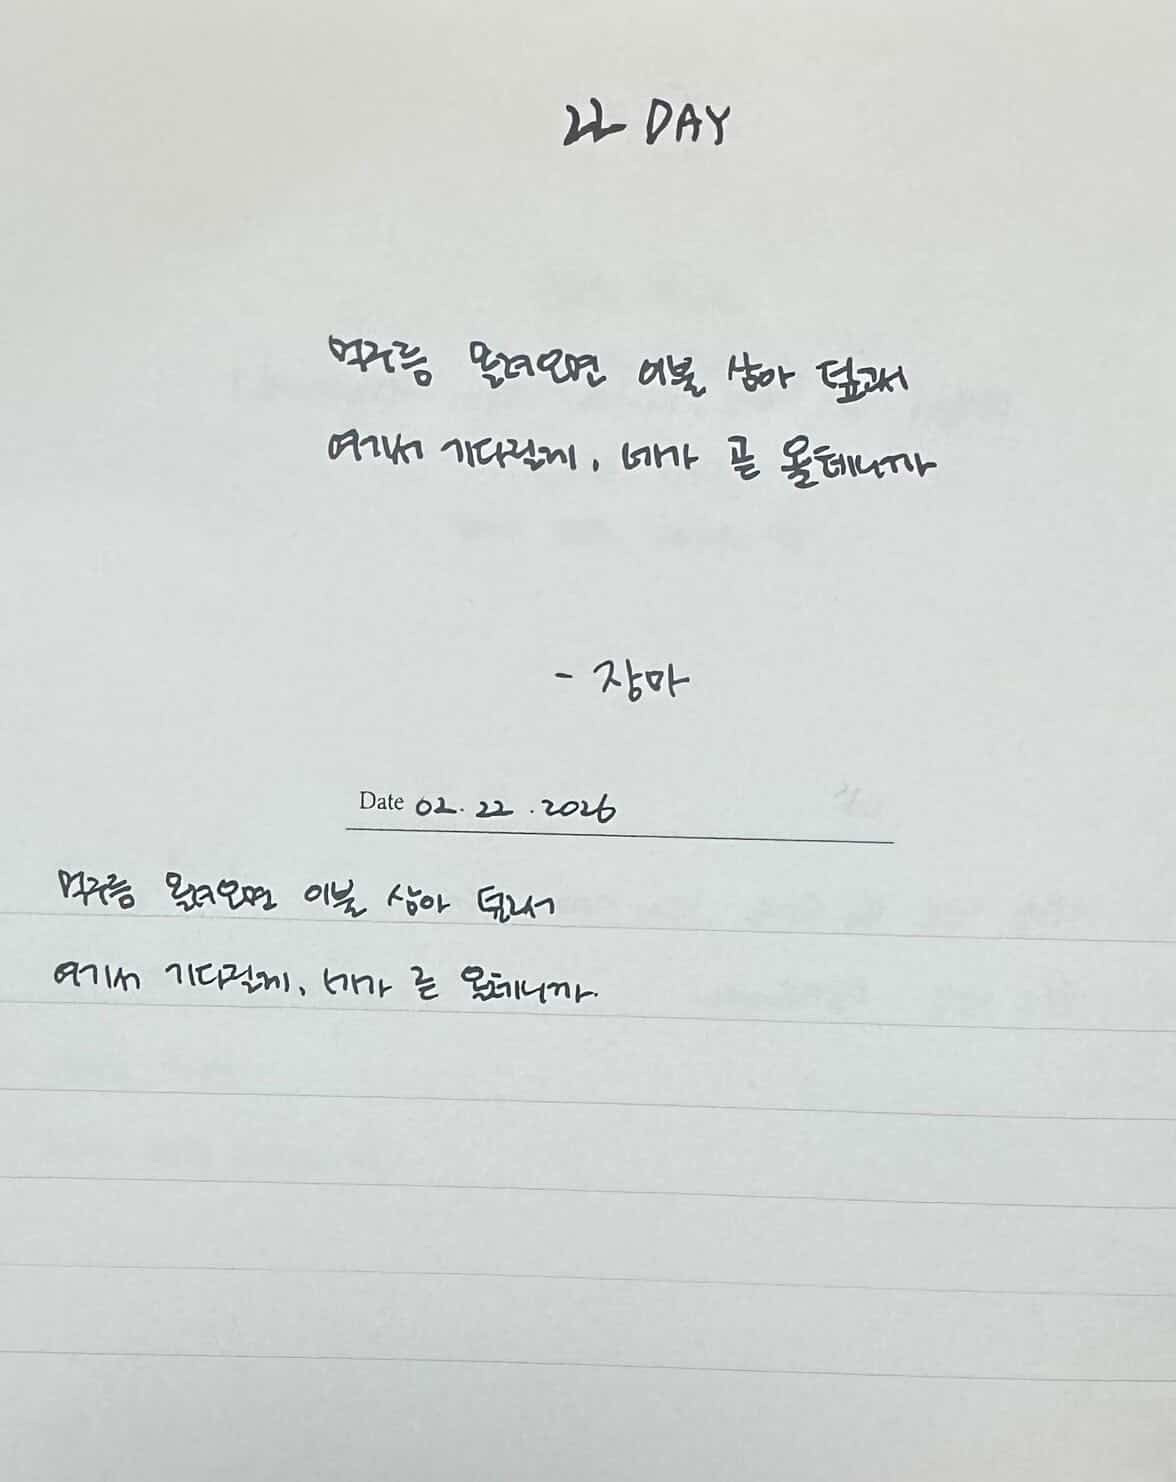 22 DAY
먹구름 몰려오면 이불 삼아 덮고서
여기서 기다릴게, 네가 곧 올테니까
- 장마
Date 02. 22 . 2026
먹구름 몰려오면 이불 삼아 덮고서
여기서 기다릴게, 네가 곧 올테니까.